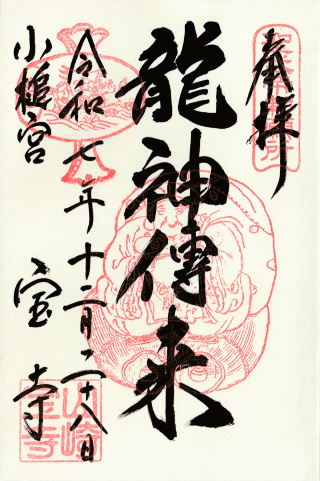 奉拝
龍神傳来
令和七年十二月二十八日
小槌宮
宝寺
山崎
宝寺